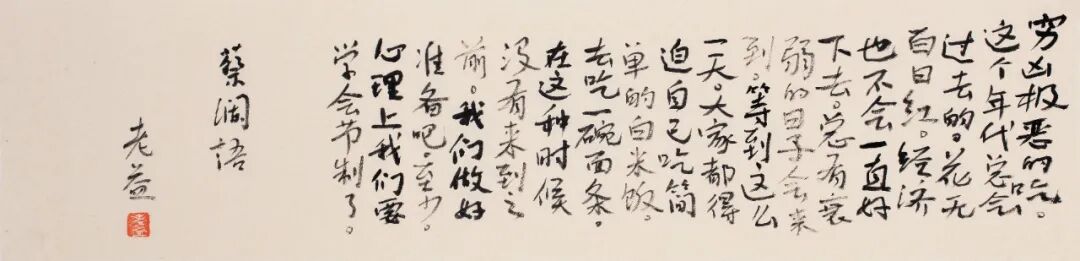 穷凶极恶的吃。
这个年代总会
过去的。花无
百日红。经济
也不会一直好
下去。总有衰
弱的日子会来
到。等到这么
一天。大家都得
迫自己吃简
单的白米饭。
去吃一碗面条。
在这种时候
没有来到之
前。我们做好
准备吧。至少。
心理上我们要
学会节制了。
蔡澜语
老益